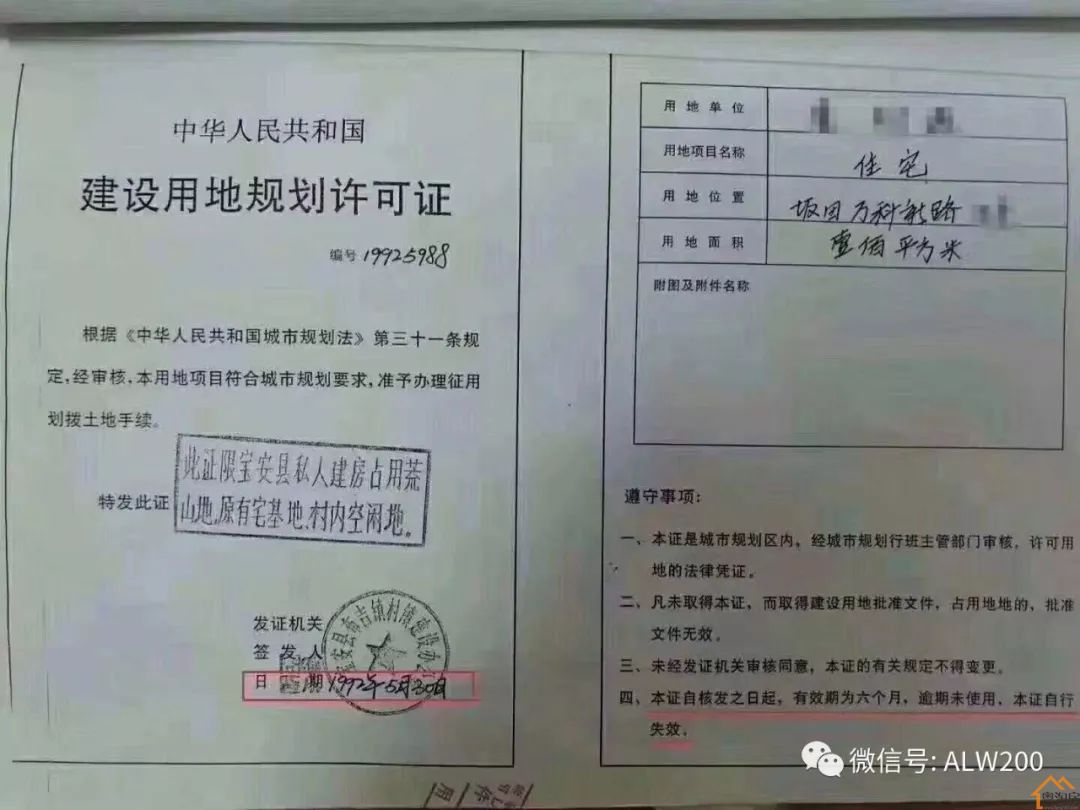 中华人民共和国
建设用地规划许可证
编号 19925988
根据《中华人民共和国城市规划法》第三十一条规
定,经审核,本用地项目符合城市规划要求,准予办理征用
划拨土地手续。
特发此证
此证限宝安县私人建房占用荒
山地,原有宅基地,村内空闲地。
发证机关
签发人
日期 1992年5月30日
宝安县布吉镇村镇建设办
用地单位
用地项目名称 住宅
用地位置 坂田万科新路
用地面积 壹佰平方米
附图及附件名称
遵守事项:
一、本证是城市规划区内，经城市规划行班主管部门审核，许可用
地的法律凭证。
二、凡未取得本证，而取得建设用地批准文件，占用地地的，批准
文件无效。
三、未经发证机关审核同意，本证的有关规定不得变更。
四、本证自核发之日起，有效期为六个月，逾期未使用，本证自行
失效.
微信号: ALW200